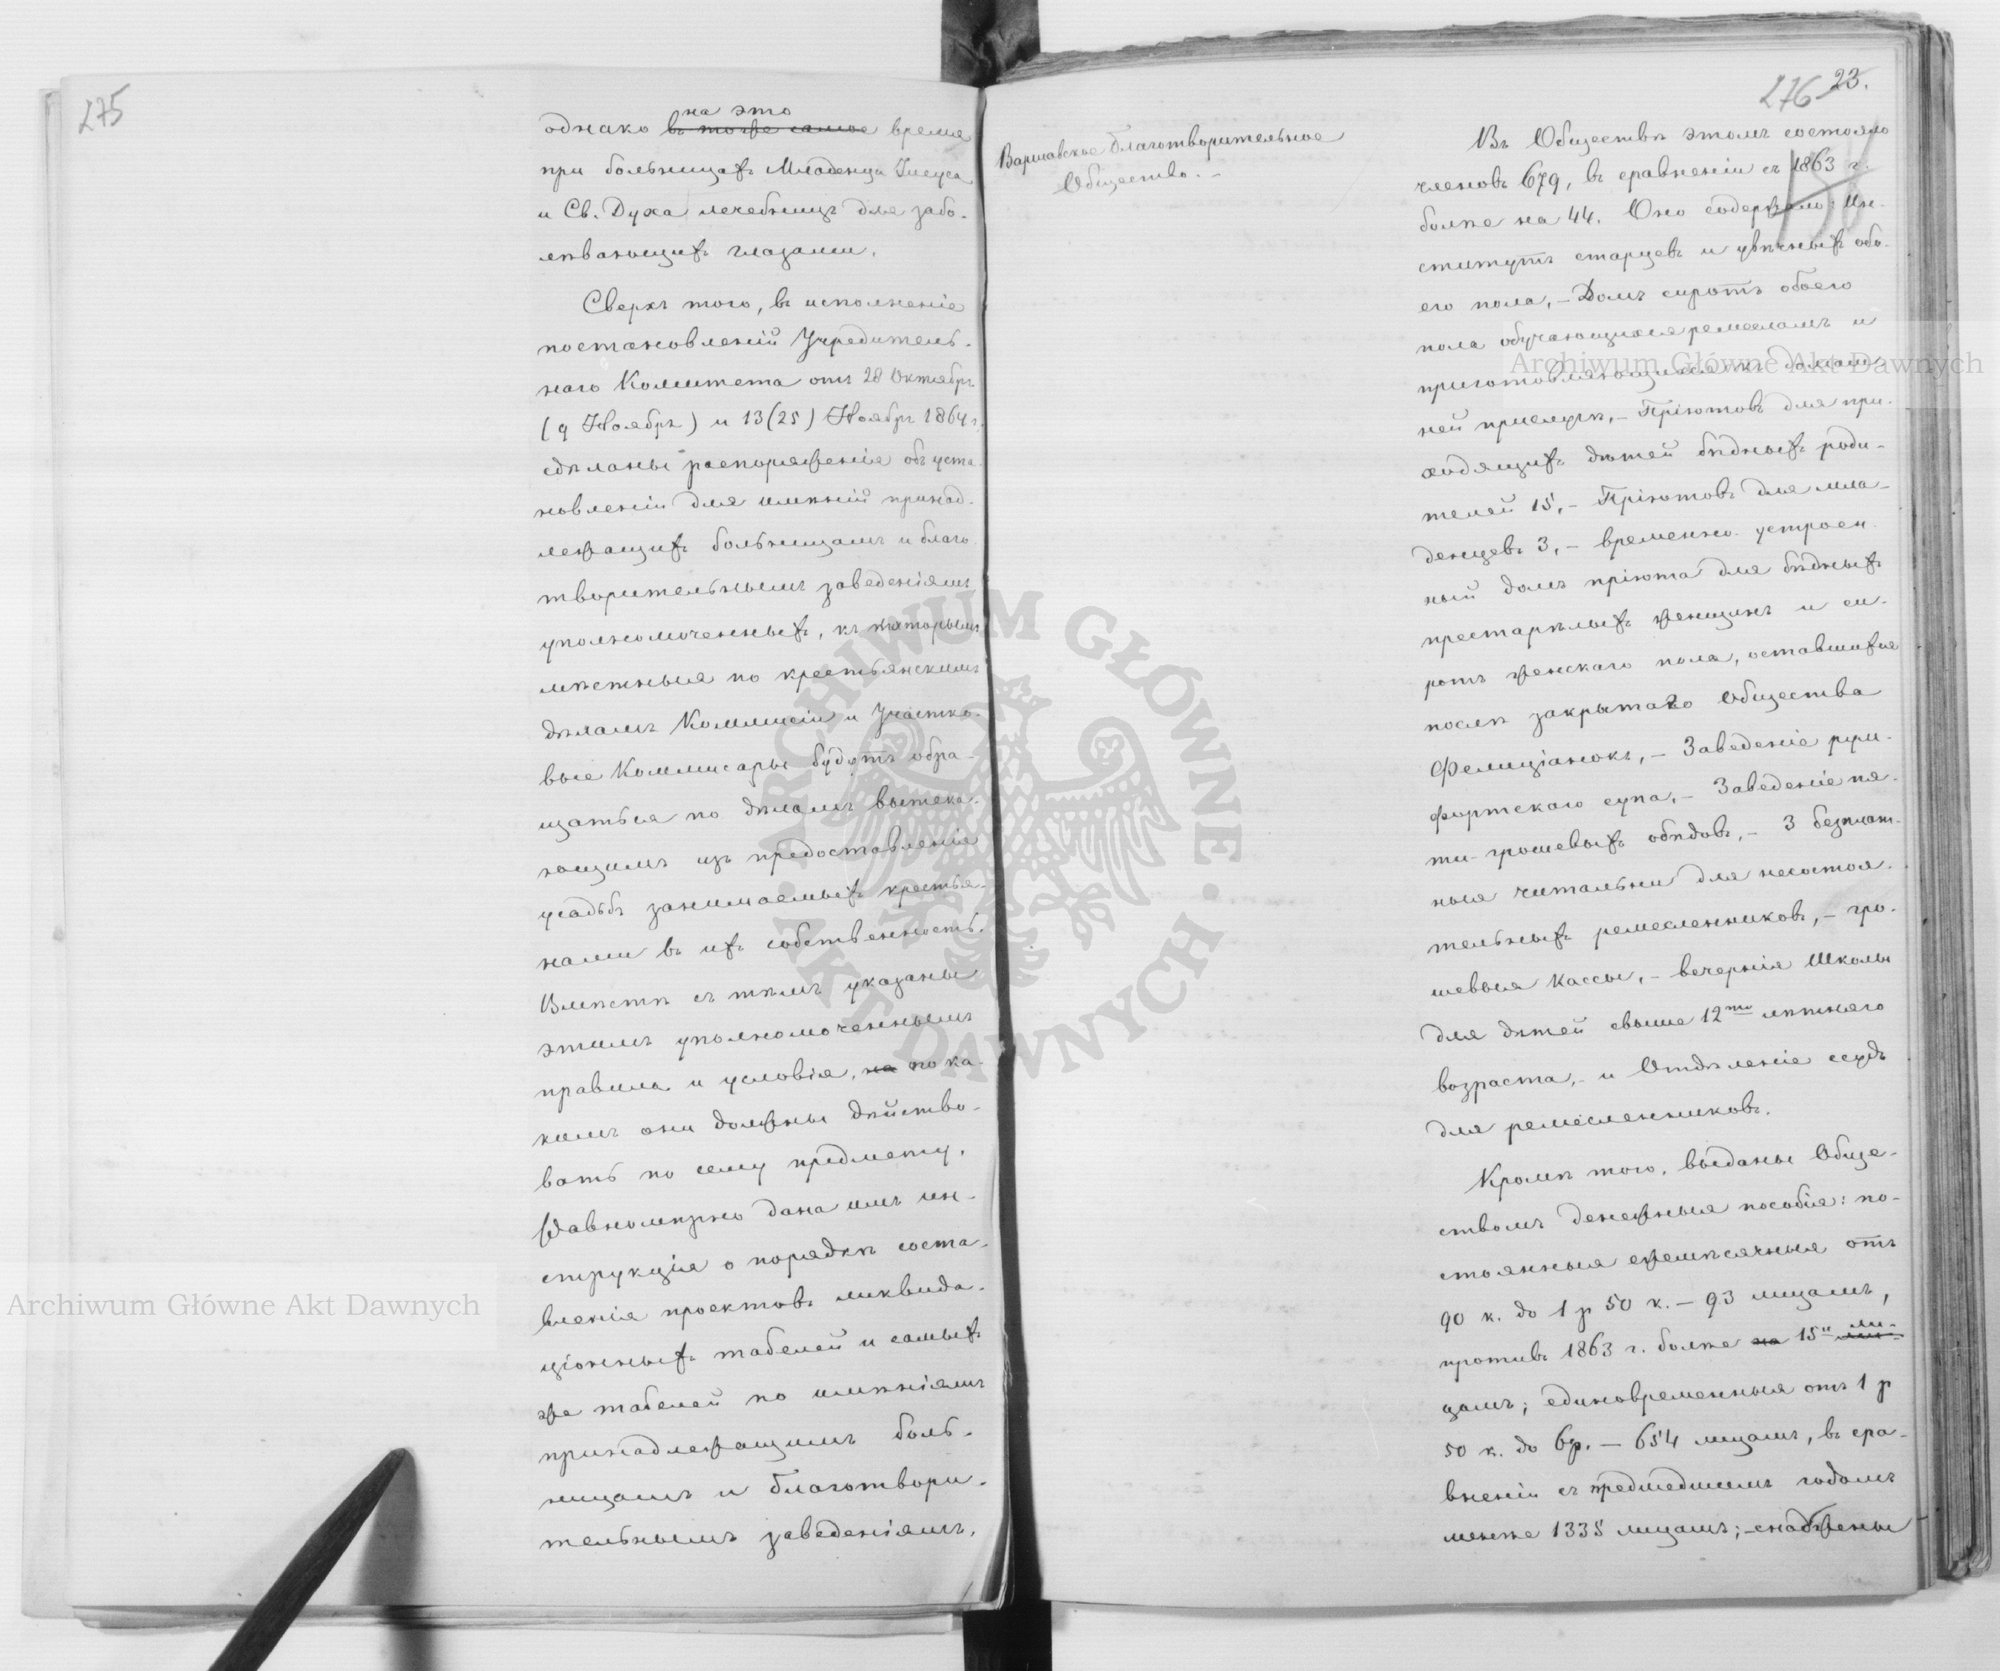 275
на это
однако въ тоже самое время
при больницахъ Младенца Іисуса
и Св. Духа лечебницъ для забо-
лѣвающихъ глазами.
Сверхъ того, въ исполненіе
постановленій Учредитель-
наго Комитета отъ 28 Октября
(9 Ноября) и 13 (25) Ноября 1864 г.
сдѣланы распоряженія объ уста-
новленіи для имѣній принад-
лежащихъ больницамъ и благо-
творительнымъ заведеніямъ
уполномоченныхъ, къ которымъ
мѣстныя по крестьянскимъ
дѣламъ Коммисіи и Участко-
вые Коммисары будутъ обра-
щаться по дѣламъ вытека-
ющимъ изъ предоставленія
усадьбъ занимаемыхъ крестья-
нами въ ихъ собственность.
Вмѣстѣ съ тѣмъ указаны
этимъ уполномоченнымъ
правила и условія, на по ка-
кимъ они должны дѣйство-
вать по сему предмету.
Равномѣрно дана имъ ин-
струкція о порядкѣ соста-
вленія проектовъ ликвида-
ціонныхъ табелей и самыхъ
же табелей по имѣніямъ
принадлежащимъ боль-
ницамъ и благотвори-
тельнымъ заведеніямъ.
276 23.
Варшавское благотворительное
Общество.-
Въ Обществѣ этомъ состояло
членовъ 679, въ сравненіи съ 1863 г.
болѣе на 44. Оно содержало: Ин-
ститутъ старцевъ и увѣчныхъ обо-
его пола,- Домъ сиротъ обоего
пола обучающихся ремесламъ и
приготовляющихся къ домаш-
ней прислугѣ,- Пріютовъ для при-
ходящихъ дѣтей бѣдныхъ роди-
телей 15,- Пріютовъ для мла-
денцевъ 3,- временно устроен-
ный домъ пріюта для бѣдныхъ
престарѣлыхъ женщинъ и си-
ротъ женскаго пола, оставшихся
послѣ закрытаго Общества
Фелиціанокъ,- Заведеніе рум-
фортскаго супа,- Заведеніе пя-
ти-грошевыхъ обѣдовъ,- 3 безплат-
ныя читальни для несостоя-
тельныхъ ремесленниковъ,- гро-
шевыя кассы,- вечернія школы
для дѣтей свыше 12ти лѣтняго
возраста,- и Отдѣленіе ссудъ
для ремесленниковъ.
Кромѣ того, выданы Обще-
ствомъ денежныя пособія: по-
стоянныя ежемѣсячныя отъ
90 к. до 1 р 50 к. — 93 лицамъ,
противъ 1863 г. болѣе на 15и ли-
цамъ; единовременныя отъ 1 р
50 к. до 6 р. — 654 лицамъ, въ сра-
вненіи съ предшедшимъ годомъ
менѣе 1335 лицамъ; - снабжены
Archiwum Główne Akt Dawnych
Archiwum Główne Akt Dawnych
ARCHIWUM GŁÓWNE · AKT DAWNYCH ·